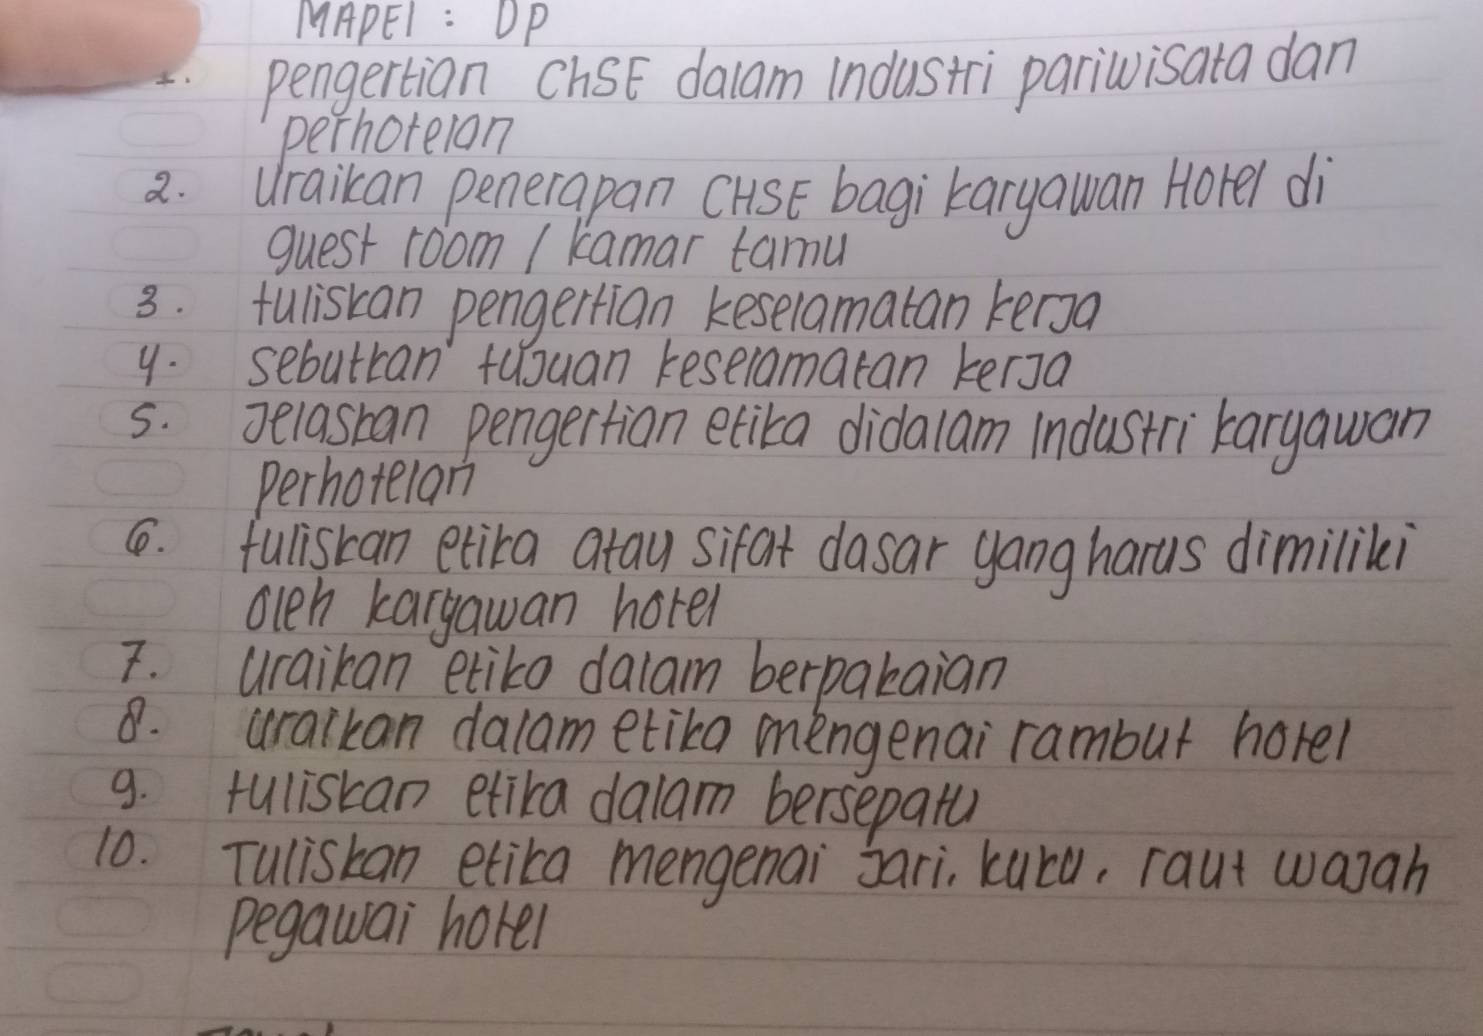 MAPEl : DP
1. pengertian ChSE dalam industri pariwisata dan
perhotelan
2. Uraikan penerapan CHSE bagi karyawan Hotel di
guest room / kamar tamu
3. tuliskan pengertian keselamatan kerja
4. sebutkan tujuan keselamatan kerja
5. Jelaskan pengertian etika didalam industri karyawan
perhotelan
6. tuliskan etika atau sifat dasar yang harus dimiliki
oleh karyawan hotel
7. uraikan etika dalam berpakaian
8. uraikan dalam etika mengenai rambut hotel
9. tuliskan etika dalam bersepatu
10. Tuliskan etika mengenai jari, kuku, raut wajah
pegawai hotel